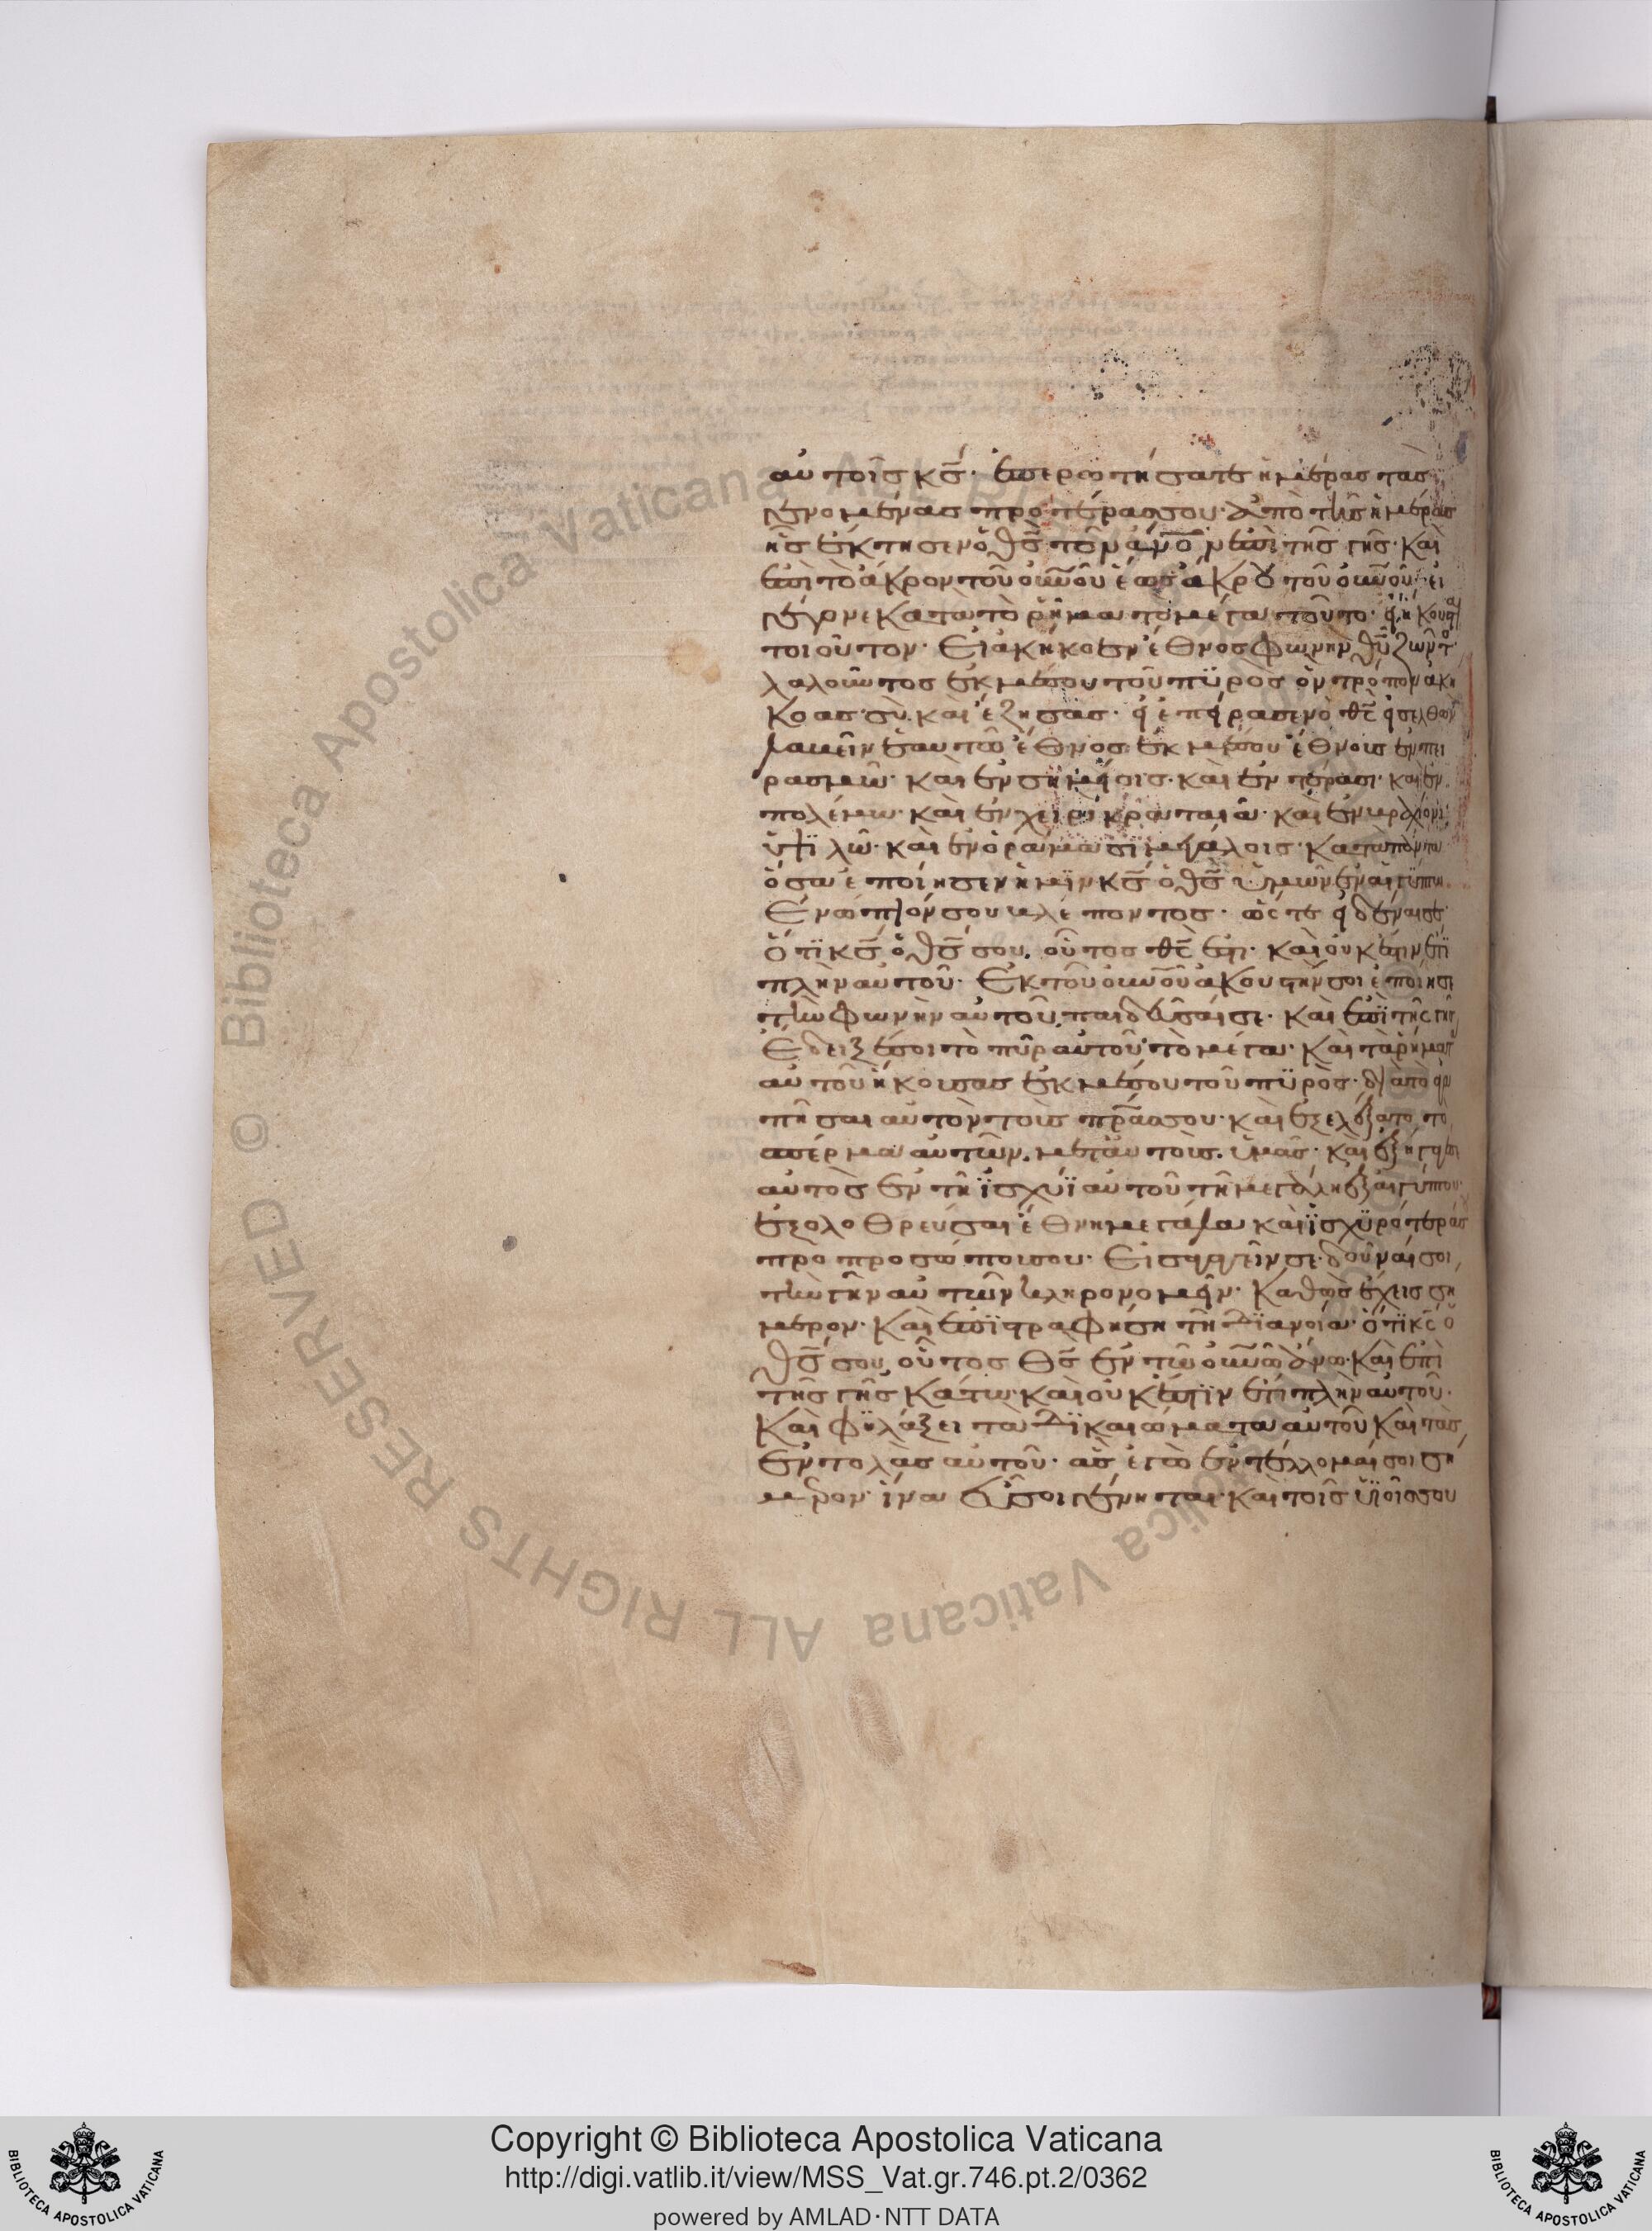 αὐτοῖς κς̅· ἐπερωτήσατε ἡμέρας τὰς
γενομένας προτέρας σου· ἀπὸ τῆς ἡμέρας
ἧς ἔκτησεν ὁ θς̅ τὸν ἄνο̅ν ἐπὶ τῆς γῆς· καὶ
ἐπὶ τὸ ἄκρον τοῦ οὐνοῦ ἕως ἄκρου τοῦ οὐνοῦ· εἰ
γέγονε κατὰ τὸ ῥῆμα τὸ μέγα τοῦτο· εἰ ἤκουσται
τοιοῦτον· Εἰ ἀκήκοεν ἔθνος φωνὴν θυ̅ ζῶντος
λαλοῦντος ἐκ μέσου τοῦ πυρὸς ὃν τρόπον ἀκή
κοας σὺ καὶ ἔζησας· εἰ ἐπείρασεν ὁ θς̅ εἰσελθὼν
λαβεῖν ἑαυτῶ ἔθνος ἐκ μέσου ἔθνους ἐν πει
ρασμῶ· καὶ ἐν σημείοις· καὶ ἐν τέρασι· καὶ ἐν
πολέμω· καὶ ἐν χειρὶ κραταιᾶ· καὶ ἐν βραχίονι
ὑψιλῶ· καὶ ἐν ὁράμασι μεγάλοις· κατὰ πάντα
ὅσα ἐποίησεν ἡμῖν κς̅ ὁ θς̅ ὑμῶν ἐν αἰγύπτω
Ἐνώπιόν σου βλέποντος· ὥστε εἰδέναι σε
ὅτι κς̅ ὁ θς̅ σου οὗτος θς̅ ἐστι· καὶ οὐκ ἔστιν ἔτι
πλὴν αὐτοῦ· Ἐκ τοῦ οὐνοῦ ἀκουστήν σοι ἐποίησε
τὴν φωνὴν αὐτοῦ παιδεῦσαί σε· καὶ ἐπὶ τῆς γῆς
Ἔδειξέ σοι τὸ πῦρ αὐτοῦ τὸ μέγα· καὶ τὰ ῥήματα
αὐτοῦ ἤκουσας ἐκ μέσου τοῦ πυρὸς· διὰ τὸ ἀγα
πῆσαι αὐτὸν τοὺς πρ̅ας σου· καὶ ἐξελέξατο τὸ
σπέρμα αὐτῶν μετ' αὐτοὺς ὑμᾶς· καὶ ἐξήγαγέ σε
αὐτὸς ἐν τῆ ἰσχύϊ αὐτοῦ τῆ μεγάλη ἐξ αἰγύπτου·
ἐξολοθρεῦσαι ἔθνη μεγάλα καὶ ἰσχυρότερά σου
πρὸ προσώπου σου· Εἰσαγαγεῖν σε δοῦναί σοι
τὴν γῆν αὐτῶν κληρονομεῖν· καθὼς ἔχεις σή
μερον· καὶ ἐπιστραφήση τῆ διανοία· ὅτι κς̅ ὁ
θς̅ σου οὗτος θς̅ ἐν τῶ οὐνῶ ἄνω· καὶ ἐπὶ
τῆς γῆς κάτω· καὶ οὐκ ἔστιν ἔτι πλὴν αὐτοῦ·
Καὶ φυλάξει τὰ δικαιώματα αὐτοῦ καὶ τὰς
ἐντολὰς αὐτοῦ· ἃς ἐγὼ ἐντέλλομαί σοι σή
μερον· ἵνα εὖ σοι γένηται· καὶ τοῖς υἱοῖς σου
Copyright © Biblioteca Apostolica Vaticana
http://digi.vatlib.it/view/MSS_Vat.gr.746.pt.2/0362
powered by AMLAD·NTT DATA
BIBLIOTECA APOSTOLICA VATICANA
BIBLIOTECA APOSTOLICA VATICANA
© Biblioteca Apostolica Vaticana ALL RIGHTS RESERVED